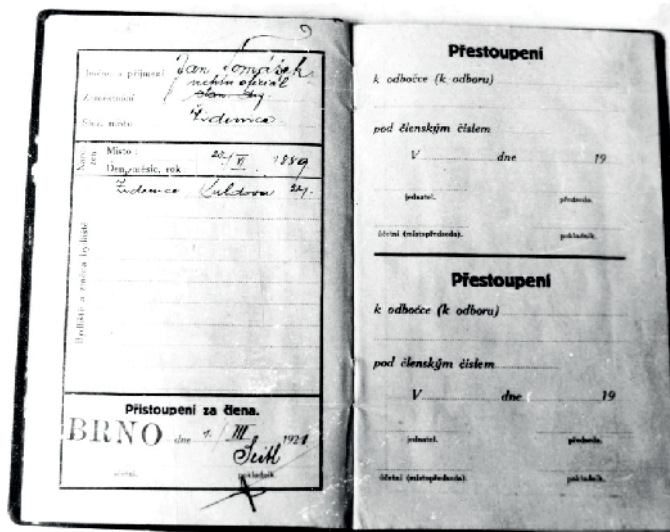 Jméno a příjmení Jan Tomášek
Zaměstnání
Služ. místo Židenice
Naro-
zen
Místo :
Den, měsíc, rok 20/VI 1889
Židenice Kuldova 24.
Bydliště a změna bydliště
Přistoupení za člena.
BRNO dne 1./III 1921
účetní. pokladník.
Přestoupení
k odbočce (k odboru)
pod členským číslem
V dne 19
jednatel. předseda.
účetní (místopředseda). pokladník.
Přestoupení
k odbočce (k odboru)
pod členským číslem
V dne 19
jednatel. předseda.
účetní (místopředseda). pokladník.